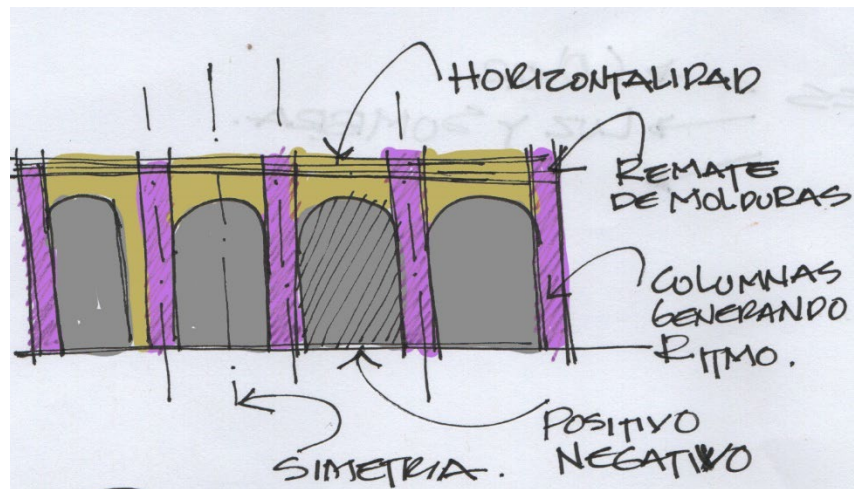 HORIZONTALIDAD
REMATE
DE MOLDURAS
COLUMNAS
GENERANDO
RITMO.
POSITIVO
NEGATIVO
SIMETRIA.